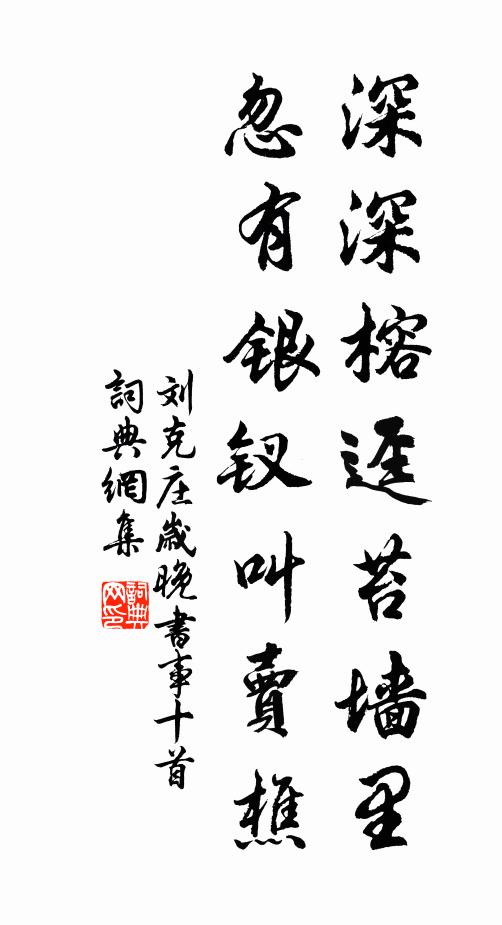 深深榕迳苔墙里
忽有银钗叫賣樵
刘克庄岁晚書事十首
詞典網集
詞典网印